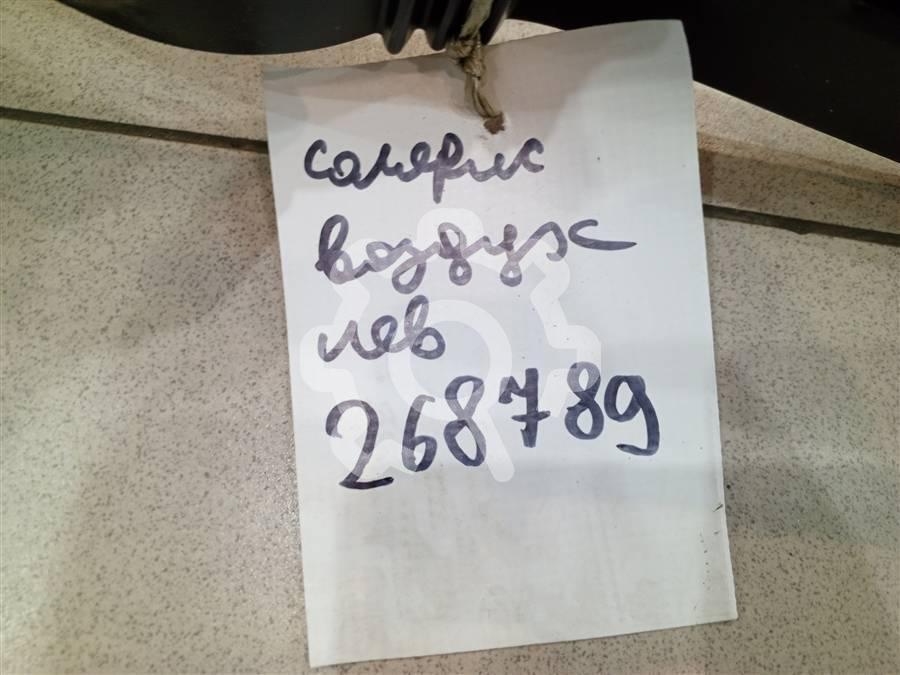 солярис
воздух
лев
268789